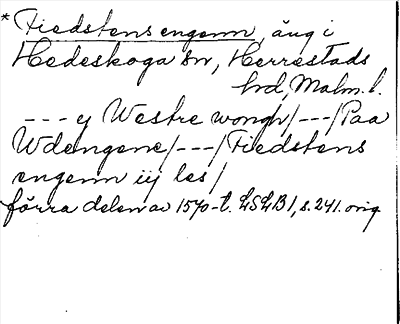 * Fiedstens engenn, äng i
Hedeskoga sn, Herrestads
hd, Malm. l.
--- ej Westre wongh/---/Paa
Wdengene/---/Fiedstens
engenn iij les/
förra delen av 1570-t. LSLB 1, s. 241. orig